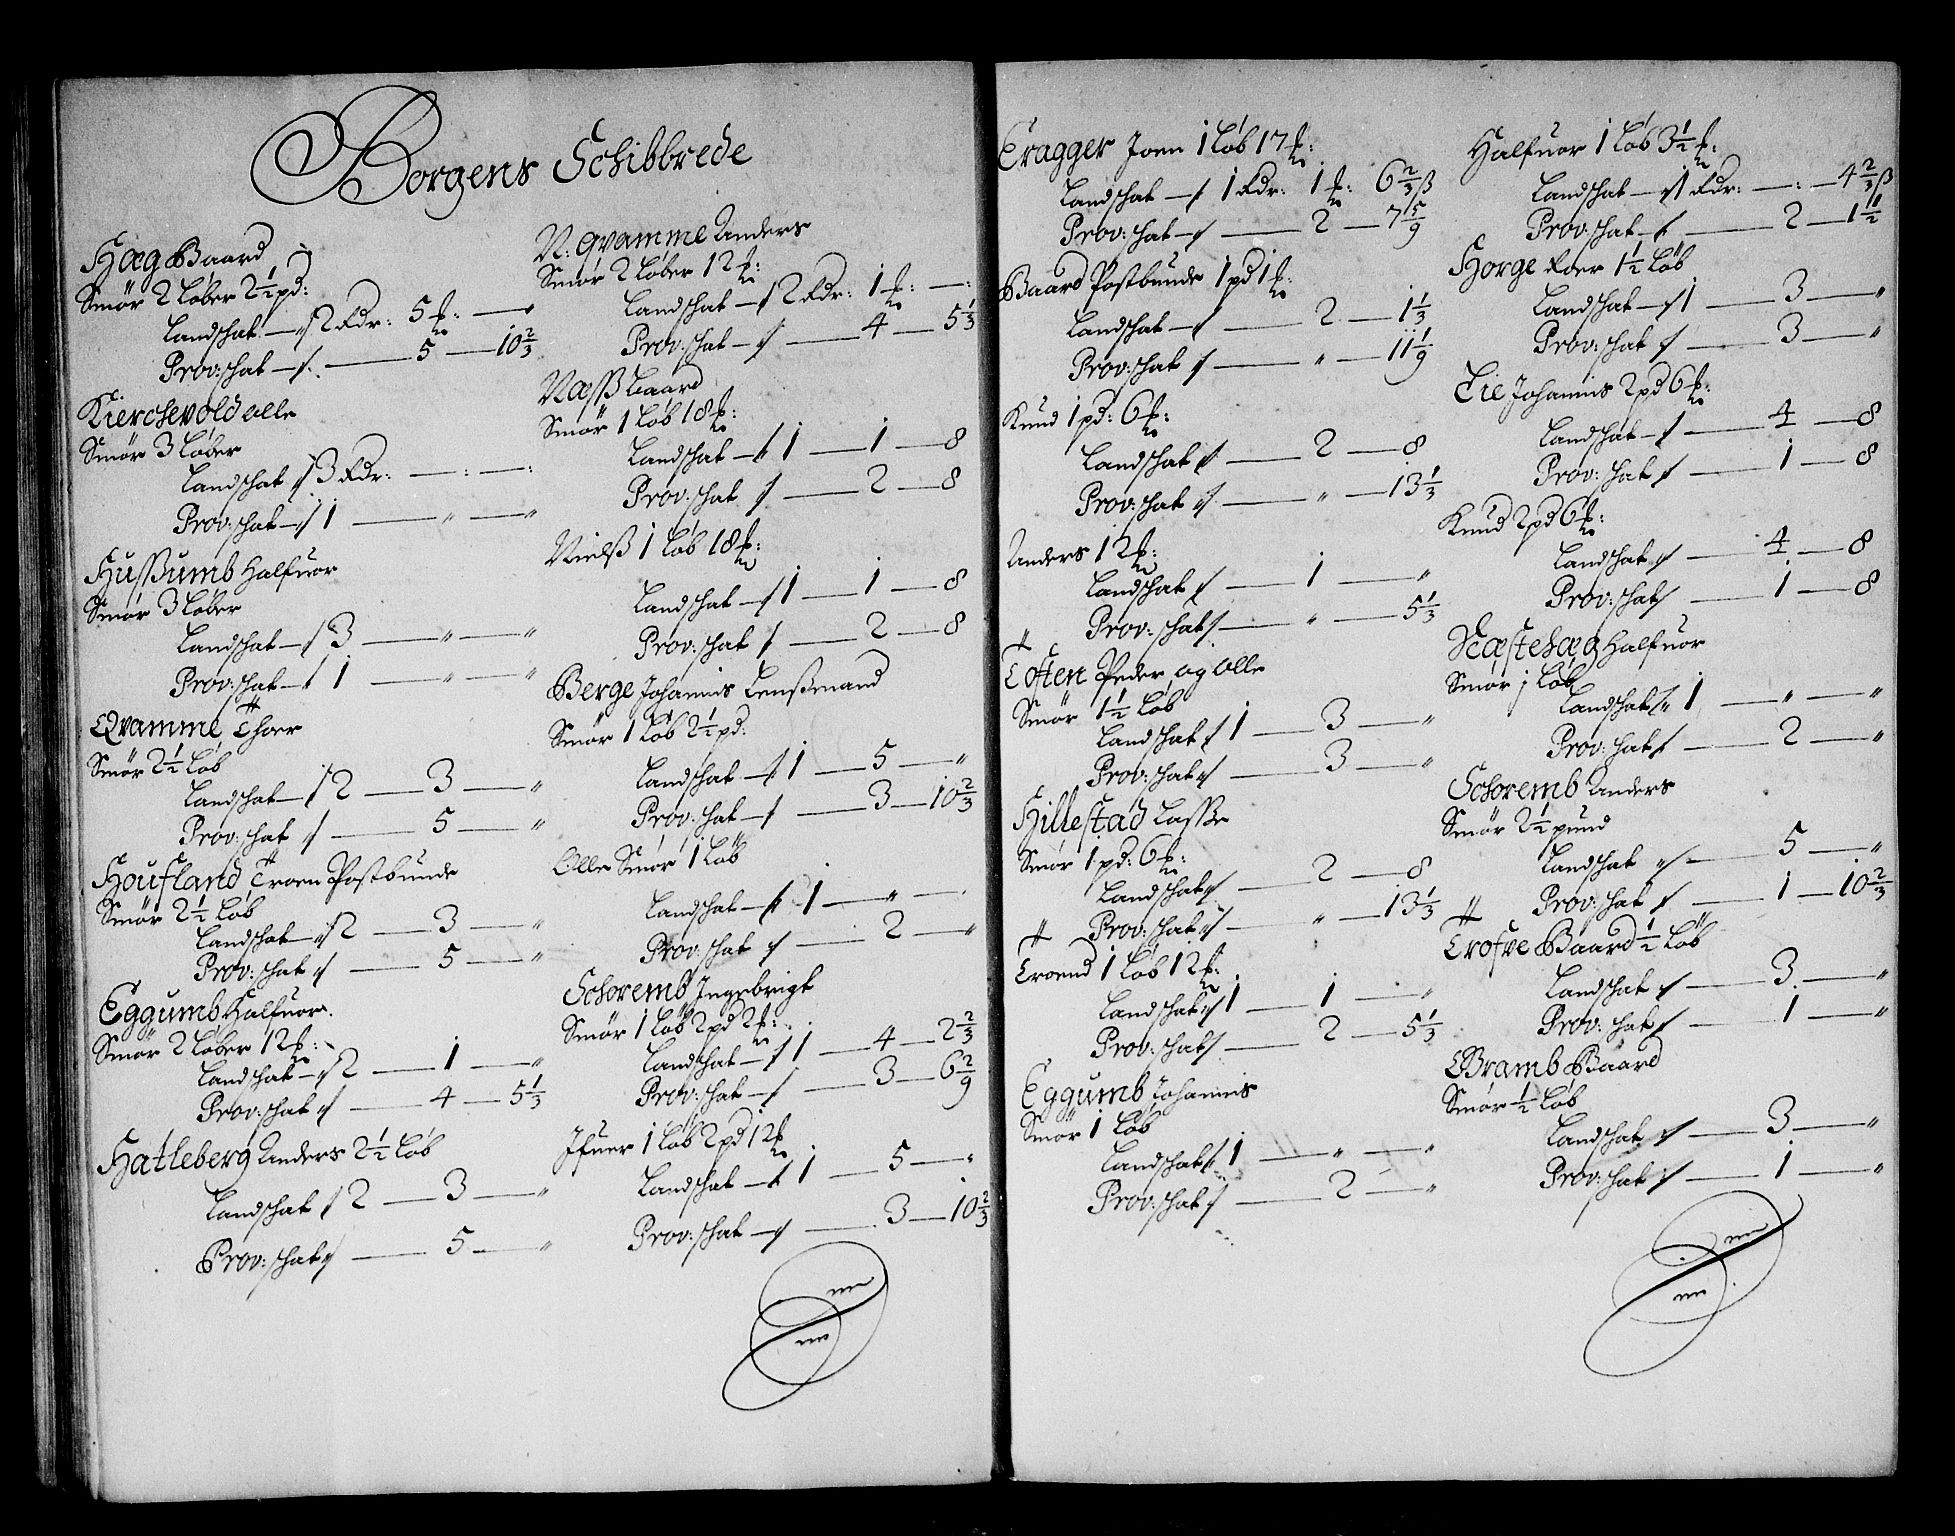 Borgens Schibbrede
Hæg Baard
Smör 2 Løber 2½ pd:
Landschat — 2 Rdr: 5 ℔: — "
Prov: schat — 5 — 10⅔
Kierchevold olle
Smör 3 Løber
Landschat 3 Rdr: — : — :
Prov: schat — 1 — " — "
Hussumb Halfuor
Smör 3 Løber
Landschat — 3 — " — "
Prov: schat — 1 — " — "
Qvamme Thoer
Smör 2½ Løb
Landschat — 2 — 3 — "
Prov: schat — 5 — "
Houfland Troen Postbunde
Smör 2½ Løb
Landschat — 2 — 3 — "
Prov: schat — 5 — "
Eggumb Halfuor
Smör 2 Løber 12 ℔:
Landschat — 2 — 1 — "
Prov: schat — 4 — 5⅓
Hatleberg Anders 2½ Løb
Landschat 2 — 3 — "
Prov: schat — 5 — "
N: Qvamme Anders
Smör 2 Løber 12 ℔:
Landschat — 2 Rdr: 1 ℔: — :
Prov: schat — 4 — 5⅓
Næss Baard
Smör 1 Løb 18 ℔:
Landschat — 1 — 1 — 8
Prov: schat — 2 — 8
Nielß 1 Løb 18 ℔:
Landschat — 1 — 1 — 8
Prov: schat — 2 — 8
Berge Johannis Lenßmand
Smör 1 Løb 2½ pd:
Landschat — 1 — 5 — "
Prov: schat — 3 — 10⅔
Olle Smör 1 Løb
Landschat — 1 — " — "
Prov: schat — 2 — "
Schoremb Ingebrigt
Smör 1 Løb 2 pd 2 ℔:
Landschat — 1 — 4 — 2⅔
Prov: schat — 3 — 6 2/9
Ifuer 1 Løb 2 pd 12 ℔
Landschat — 1 — 5 — "
Prov: schat — 3 — 10⅔
Eragger Joen 1 Løb 17 ℔:
Landschat — 1 Rdr: 1 ℔: 6⅔ ß
Prov: schat — 2 — 7 5/9
Baard Postbunde 1 pd 1 ℔:
Landschat — 2 — 1⅓
Prov: schat — " — 11 1/9
Knud 1 pd: 6 ℔:
Landschat — 2 — 8
Prov: schat — " — 13⅓
Anders 12 ℔:
Landschat — 1 — "
Prov: schat — " — 5⅓
Toften Peder og olle
Smör 1½ Løb
Landschat 1 — 3 — "
Prov: schat — 3 — "
Hillestad Lasse
Smör 1 pd: 6 ℔:
Landschat — 2 — 8
Prov: schat — " — 13⅓
Troend 1 Løb 12 ℔:
Landschat 1 — 1 — "
Prov: schat — 2 — 5⅓
Eggumb Johannis
Smör 1 Løb
Landschat 1 — " — "
Prov: schat — 2 — "
Halfuor 1 Løb 3½ ℔:
Landschat — 1 Rdr: — : — 4⅔ ß
Prov: schat — 2 — 1½
Horge Roer 1½ Løb
Landschat — 1 — 3 — "
Prov: schat — 3 — "
Lie Johannis 2 pd 6 ℔:
Landschat — 4 — 8
Prov: schat — 1 — 8
Knud 2 pd 6 ℔:
Landschat — 4 — 8
Prov: schat — 1 — 8
Næstehæg Halfuor
Smör j Løb
Landschat 1 — " — "
Prov: schat — 2 — "
Schoremb Anders
Smör 2½ pund
Landschat — 5 — "
Prov: schat — 1 — 10⅔
Trofve Baard ½ Løb
Landschat — 3 — "
Prov: schat — 1 — "
Bramb Baard
Smör ½ Løb
Landschat — 3 — "
Prov: schat — 1 — "